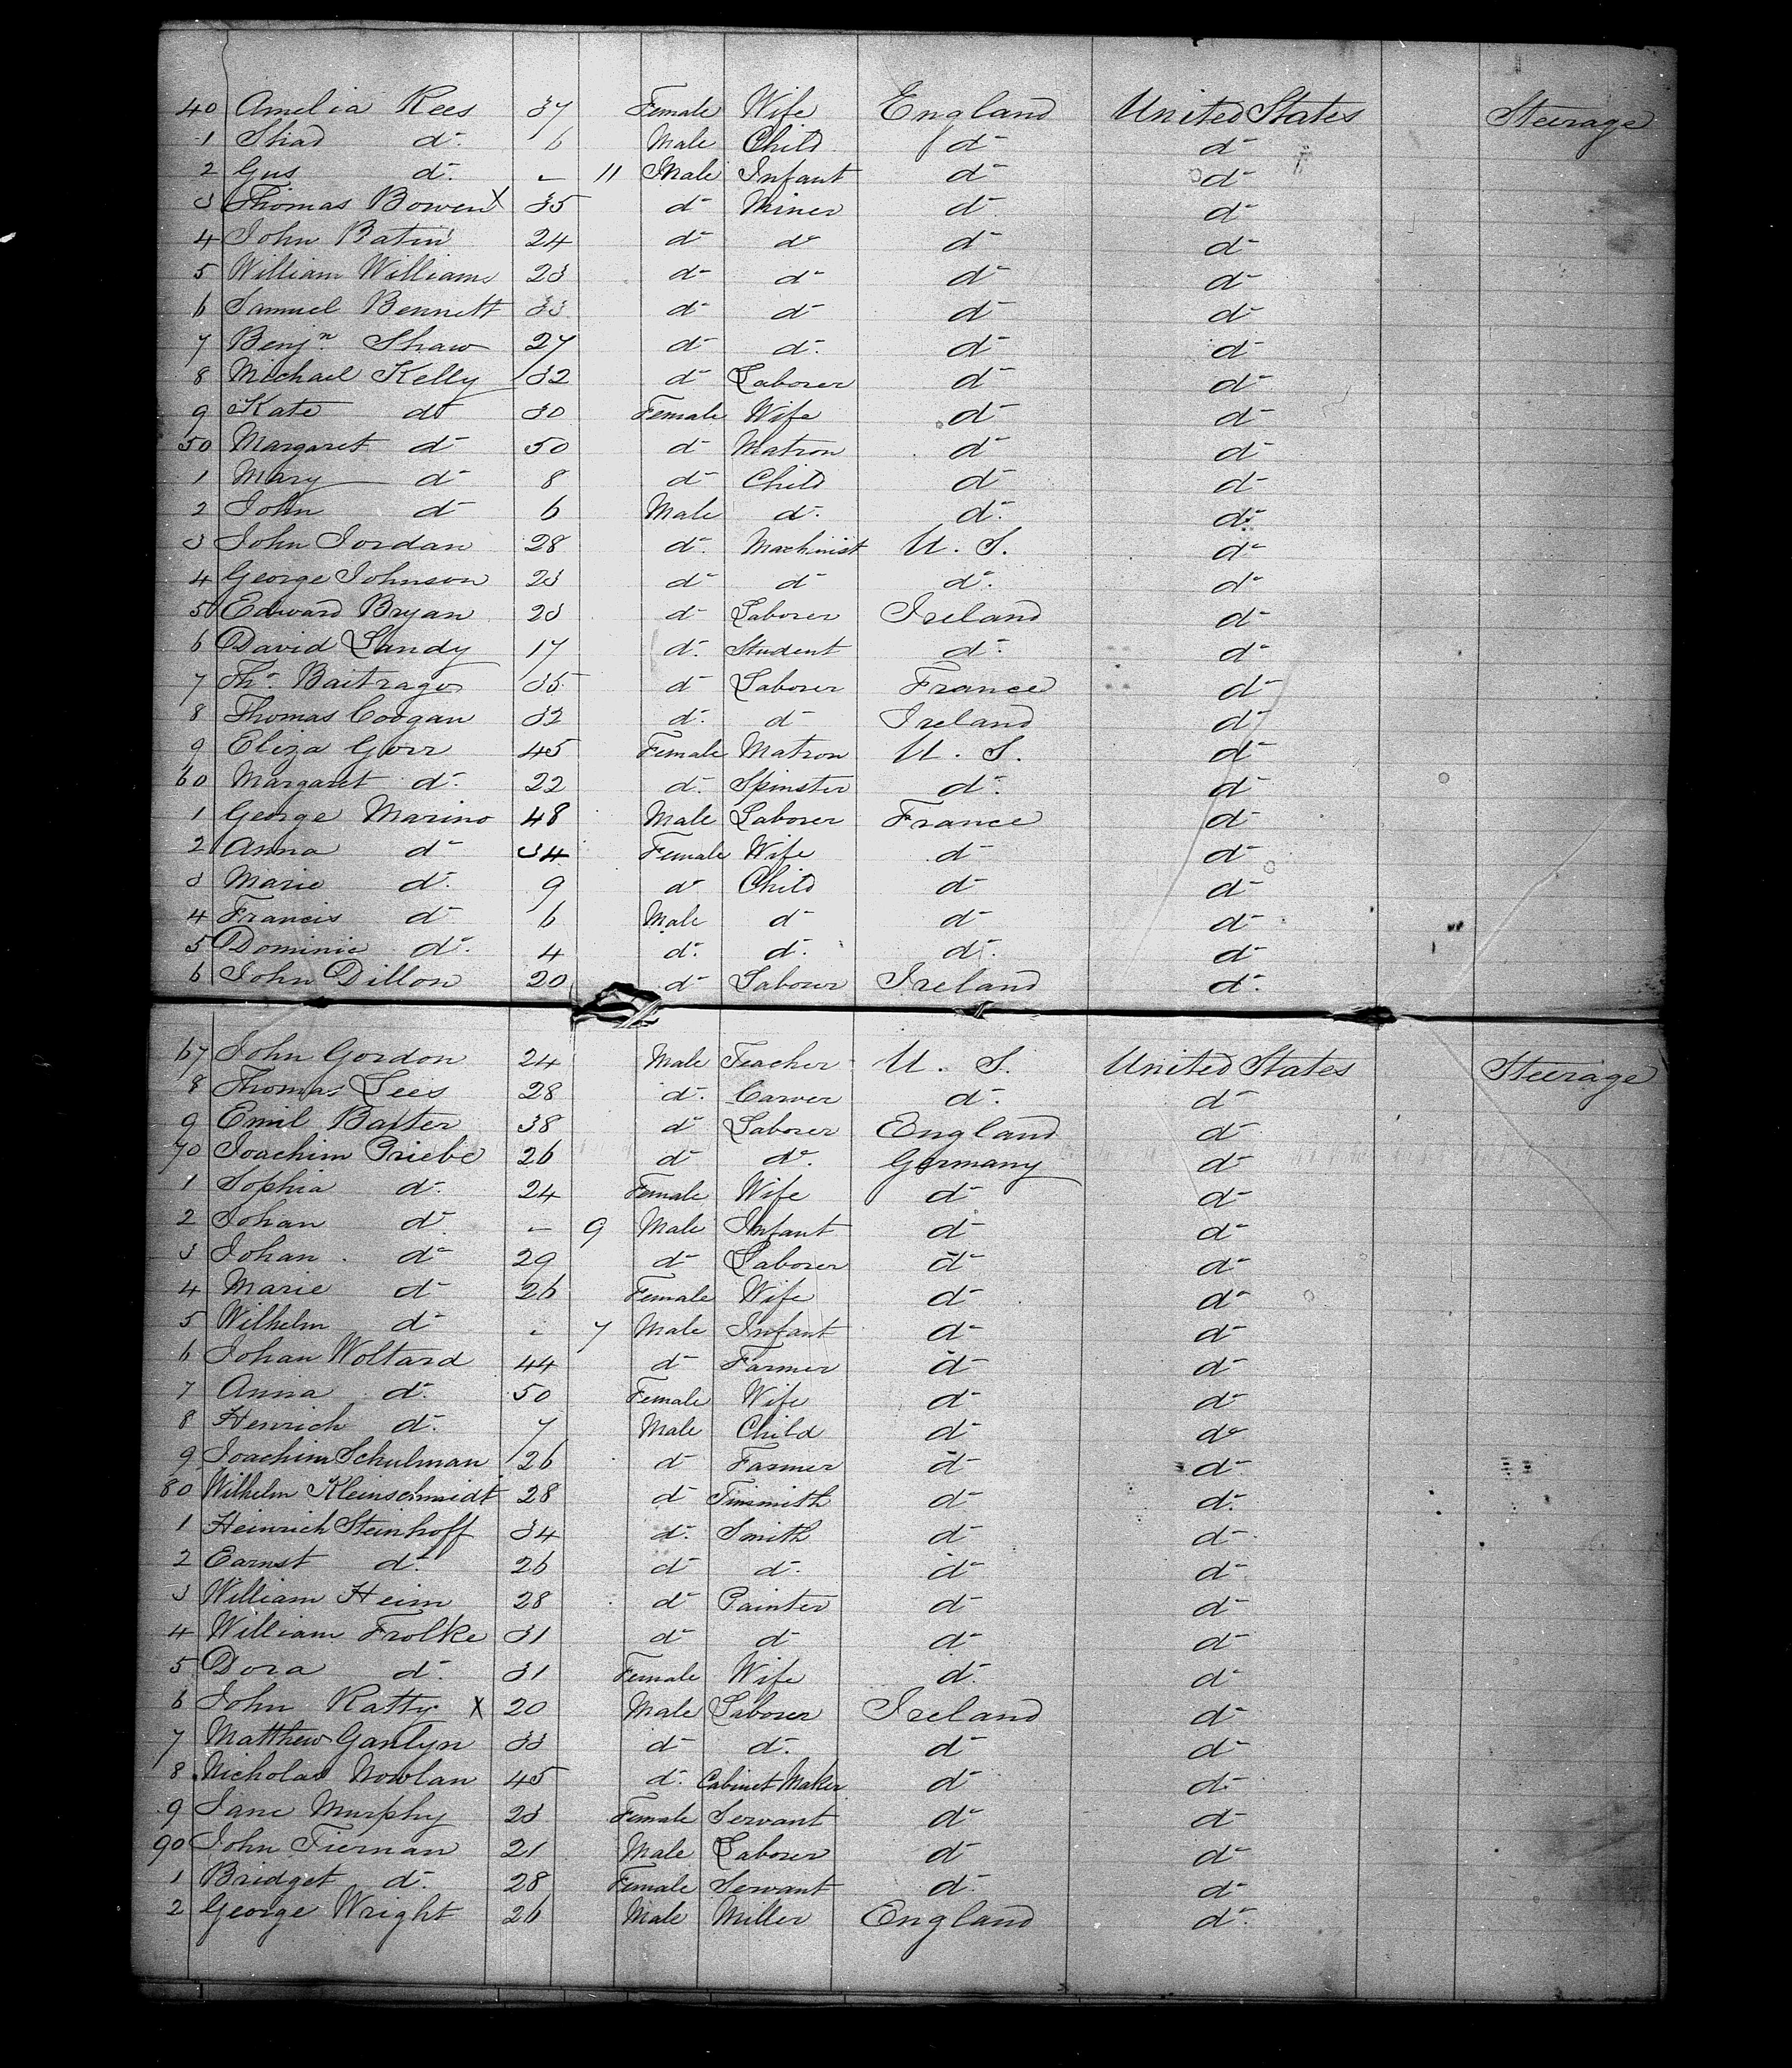 40 Amelia Rees 37 Female Wife England United States Steerage
1 Shad d- 6 Male Child d- d-
2 Gus d- - 11 Male Infant d- d-
3 Thomas Bowen X 35 d- Miner d- d-
4 John Batin 24 d- d- d- d-
5 William Williams 23 d- d- d- d-
6 Samuel Bennett 33 d- d- d- d-
7 Benjn Shaw 27 d- d- d- d-
8 Michael Kelly 32 d- Laborer d- d-
9 Kate d- 30 Female Wife d- d-
50 Margaret d- 50 d- Matron d- d-
1 Mary d- 8 d- Child d- d-
2 John d- 6 Male d- d- d-
3 John Jordan 28 d- Machinist U. S. d-
4 George Johnson 23 d- d- d- d-
5 Edward Bryan 23 d- Laborer Ireland d-
6 David Landy 17 d- Student d- d-
7 Th. Baitrago 35 d- Laborer France d-
8 Thomas Coogan 32 d- d- Ireland d-
9 Eliza Gorr 45 Female Matron U. S. d-
60 Margaret d- 22 d- Spinster d- d-
1 George Marino 48 Male Laborer France d-
2 Anna d- 34 Female Wife d- d-
3 Marie d- 9 d- Child d- d-
4 Francis d- 6 Male d- d- d-
5 Dominic d- 4 d- d- d- d-
6 John Dillon 20 d- Laborer Ireland d-
67 John Gordon 24 Male Teacher U. S. United States Steerage
8 Thomas Lees 28 d- Carver d- d-
9 Emil Baster 38 d- Laborer England d-
70 Joachim Priebe 26 d- d- Germany d-
1 Sophia d- 24 Female Wife d- d-
2 Johan d- - 9 Male Infant d- d-
3 Johan d- 29 d- Laborer d- d-
4 Marie d- 26 Female Wife d- d-
5 Wilhelm d- - 7 Male Infant d- d-
6 Johan Woltard 44 d- Farmer d- d-
7 Anna d- 50 Female Wife d- d-
8 Henrich d- 7 Male Child d- d-
9 Joachim Schulman 26 d- Farmer d- d-
80 Wilhelm Kleinschmidt 28 d- Tinsmith d- d-
1 Heinrich Steinhoff 34 d- Smith d- d-
2 Earnst d- 26 d- d- d- d-
3 William Heim 28 d- Painter d- d-
4 William Frolke 31 d- d- d- d-
5 Dora d- 31 Female Wife d- d-
6 John Ratty X 20 Male Laborer Ireland d-
7 Matthew Ganlyn 33 d- d- d- d-
8 Nicholas Nowlan 45 d- Cabinet Maker d- d-
9 Jane Murphy 23 Female Servant d- d-
90 John Tiernan 21 Male Laborer d- d-
1 Bridget d- 28 Female Servant d- d-
2 George Wright 26 Male Miller England d-